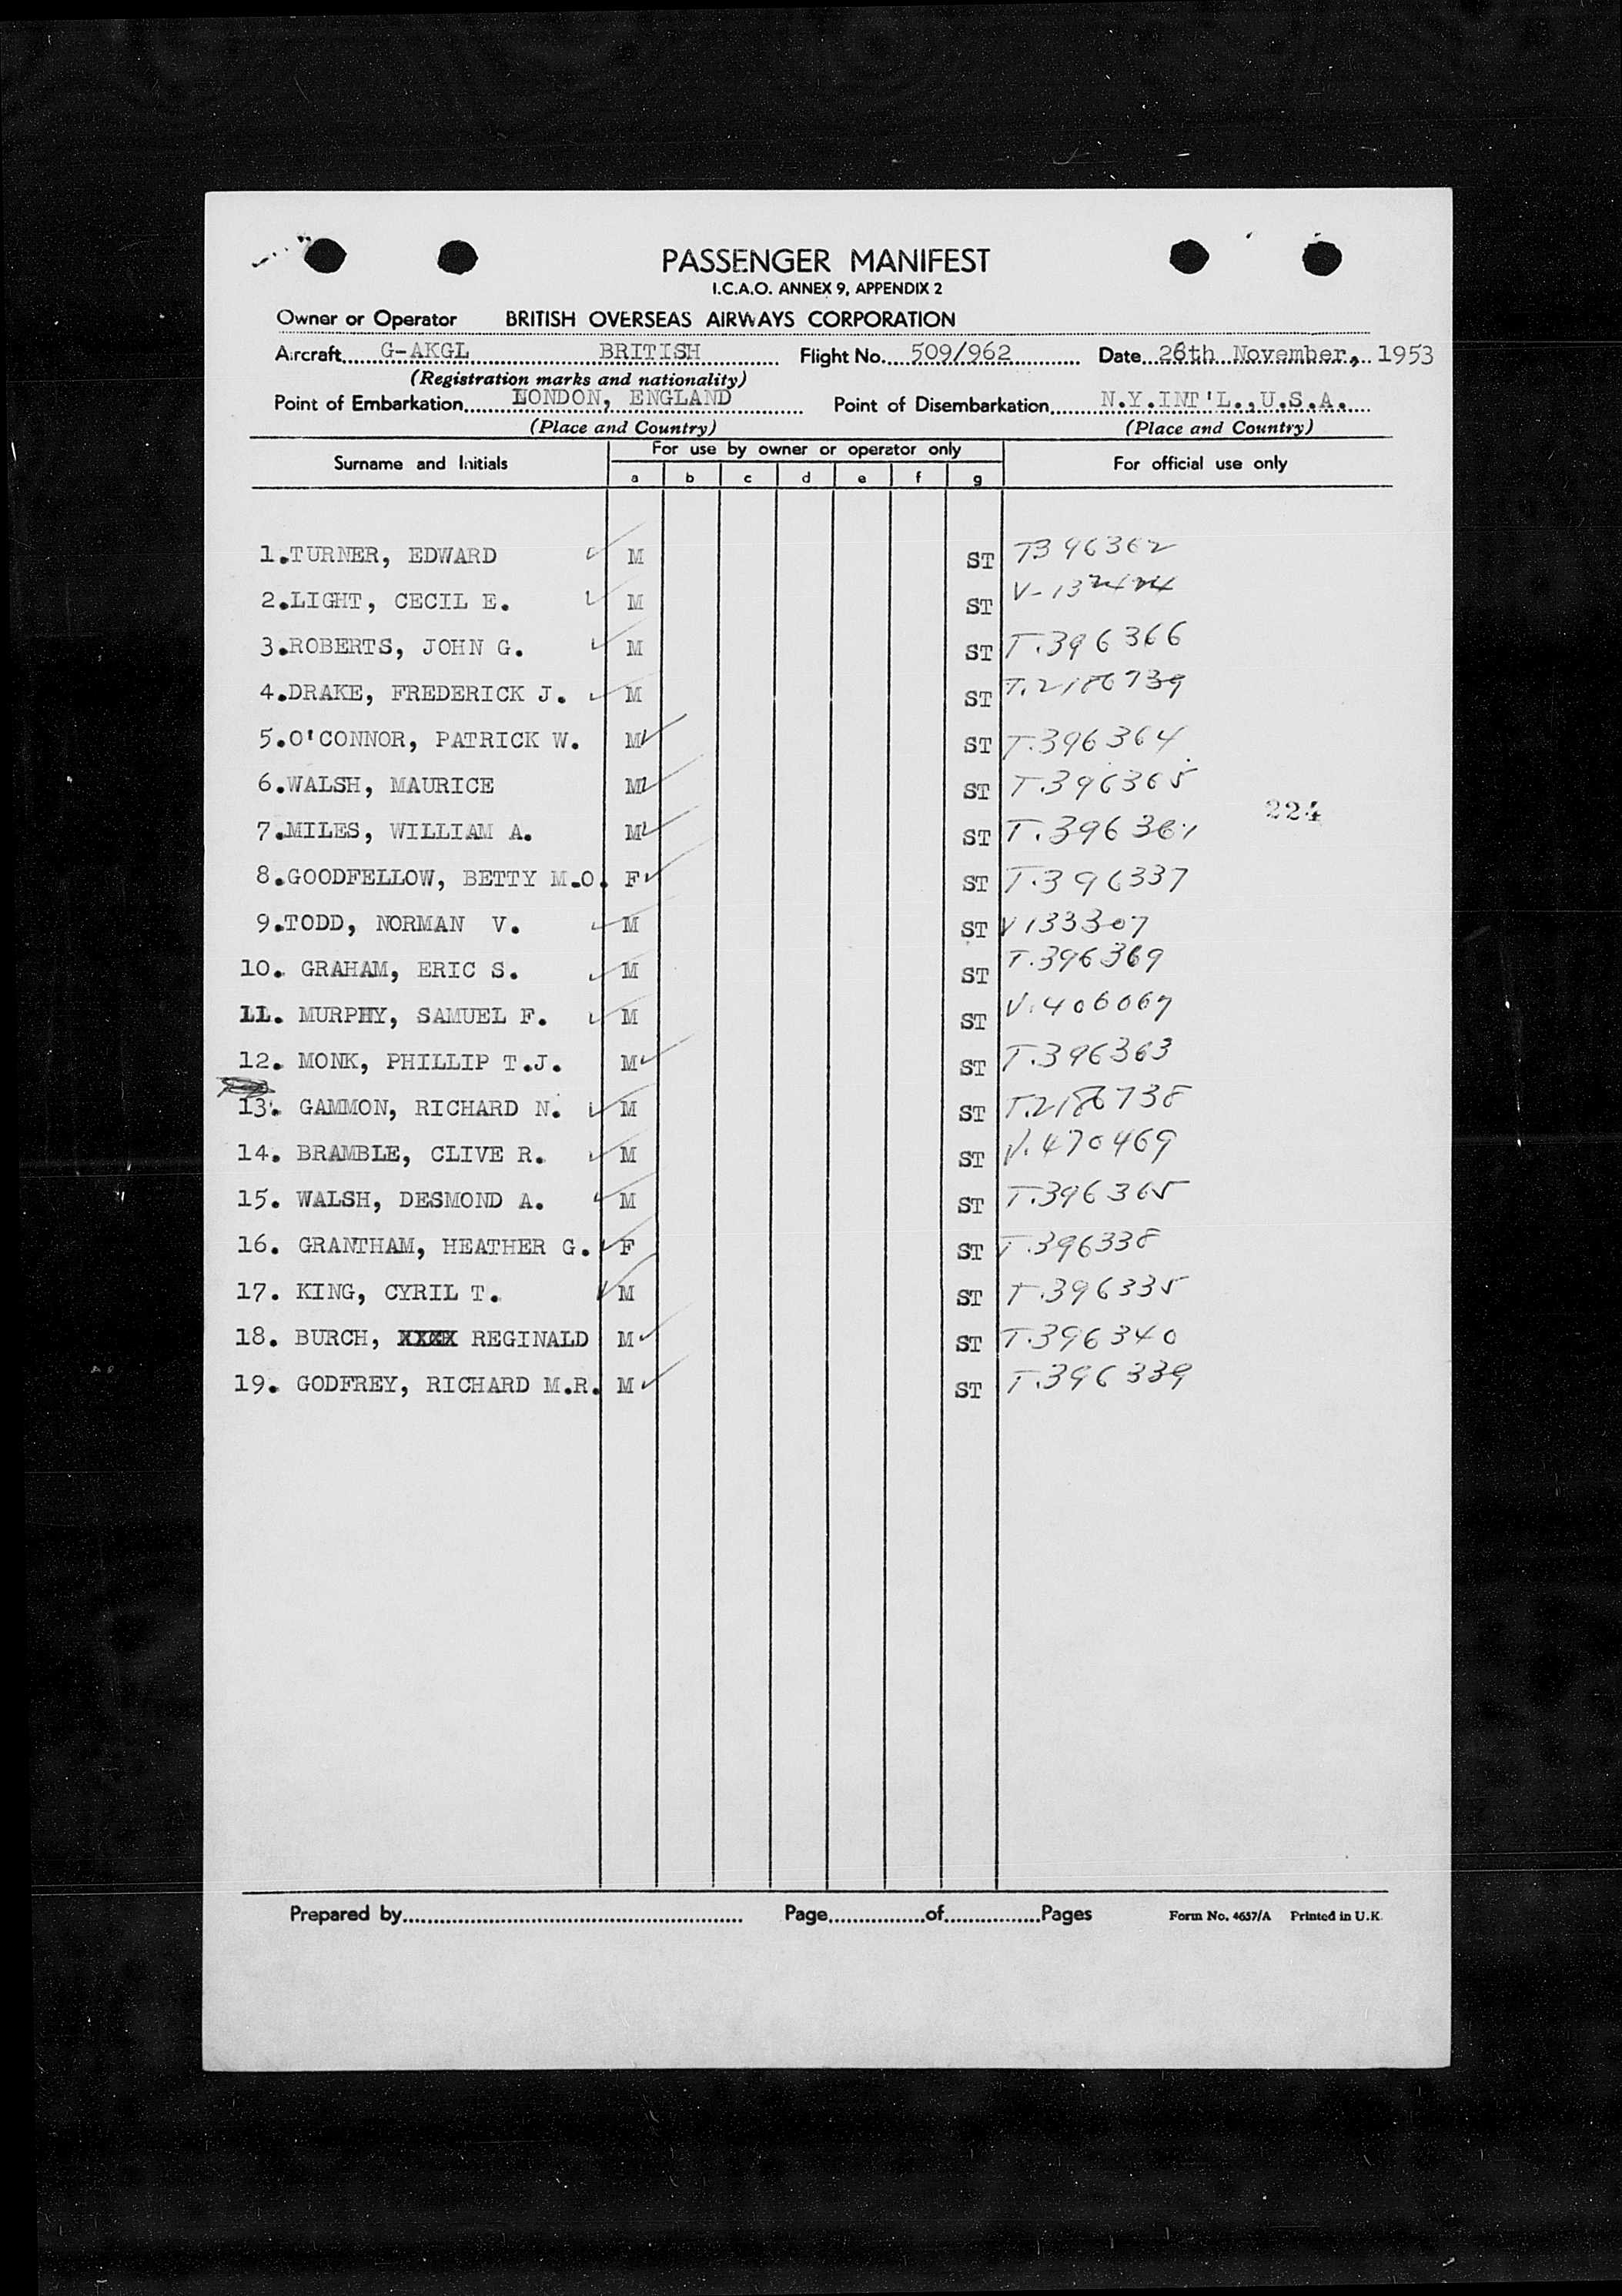 PASSENGER MANIFEST
I.C.A.O. ANNEX 9, APPENDIX 2
Owner or Operator BRITISH OVERSEAS AIRWAYS CORPORATION
Aircraft G-AKGL BRITISH Flight No. 509/962 Date 26th November, 1953
(Registration marks and nationality)
Point of Embarkation LONDON, ENGLAND Point of Disembarkation N.Y.INT'L.,U.S.A.
(Place and Country) (Place and Country)
Surname and Initials For use by owner or operator only For official use only
a b c d e f g
1.TURNER, EDWARD M ST T396362
2.LIGHT, CECIL E. M ST
3.ROBERTS, JOHN G. M ST T.396366
4.DRAKE, FREDERICK J. M ST T.2186739
5.O'CONNOR, PATRICK W. M ST T.396364
6.WALSH, MAURICE M ST T.396365
224
7.MILES, WILLIAM A. M ST
8.GOODFELLOW, BETTY M.O. F ST T.396337
9.TODD, NORMAN V. M ST V133307
10. GRAHAM, ERIC S. M ST T.396369
11. MURPHY, SAMUEL F. M ST V.406067
12. MONK, PHILLIP T.J. M ST T.396363
13. GAMMON, RICHARD N. M ST T.2186738
14. BRAMBLE, CLIVE R. M ST V.470469
15. WALSH, DESMOND A. M ST T.396365
16. GRANTHAM, HEATHER G. F ST T.396338
17. KING, CYRIL T. M ST T.396335
18. BURCH, REGINALD M ST T.396340
19. GODFREY, RICHARD M.R. M ST T.396339
Prepared by Page of Pages Form No. 4657/A Printed in U.K.